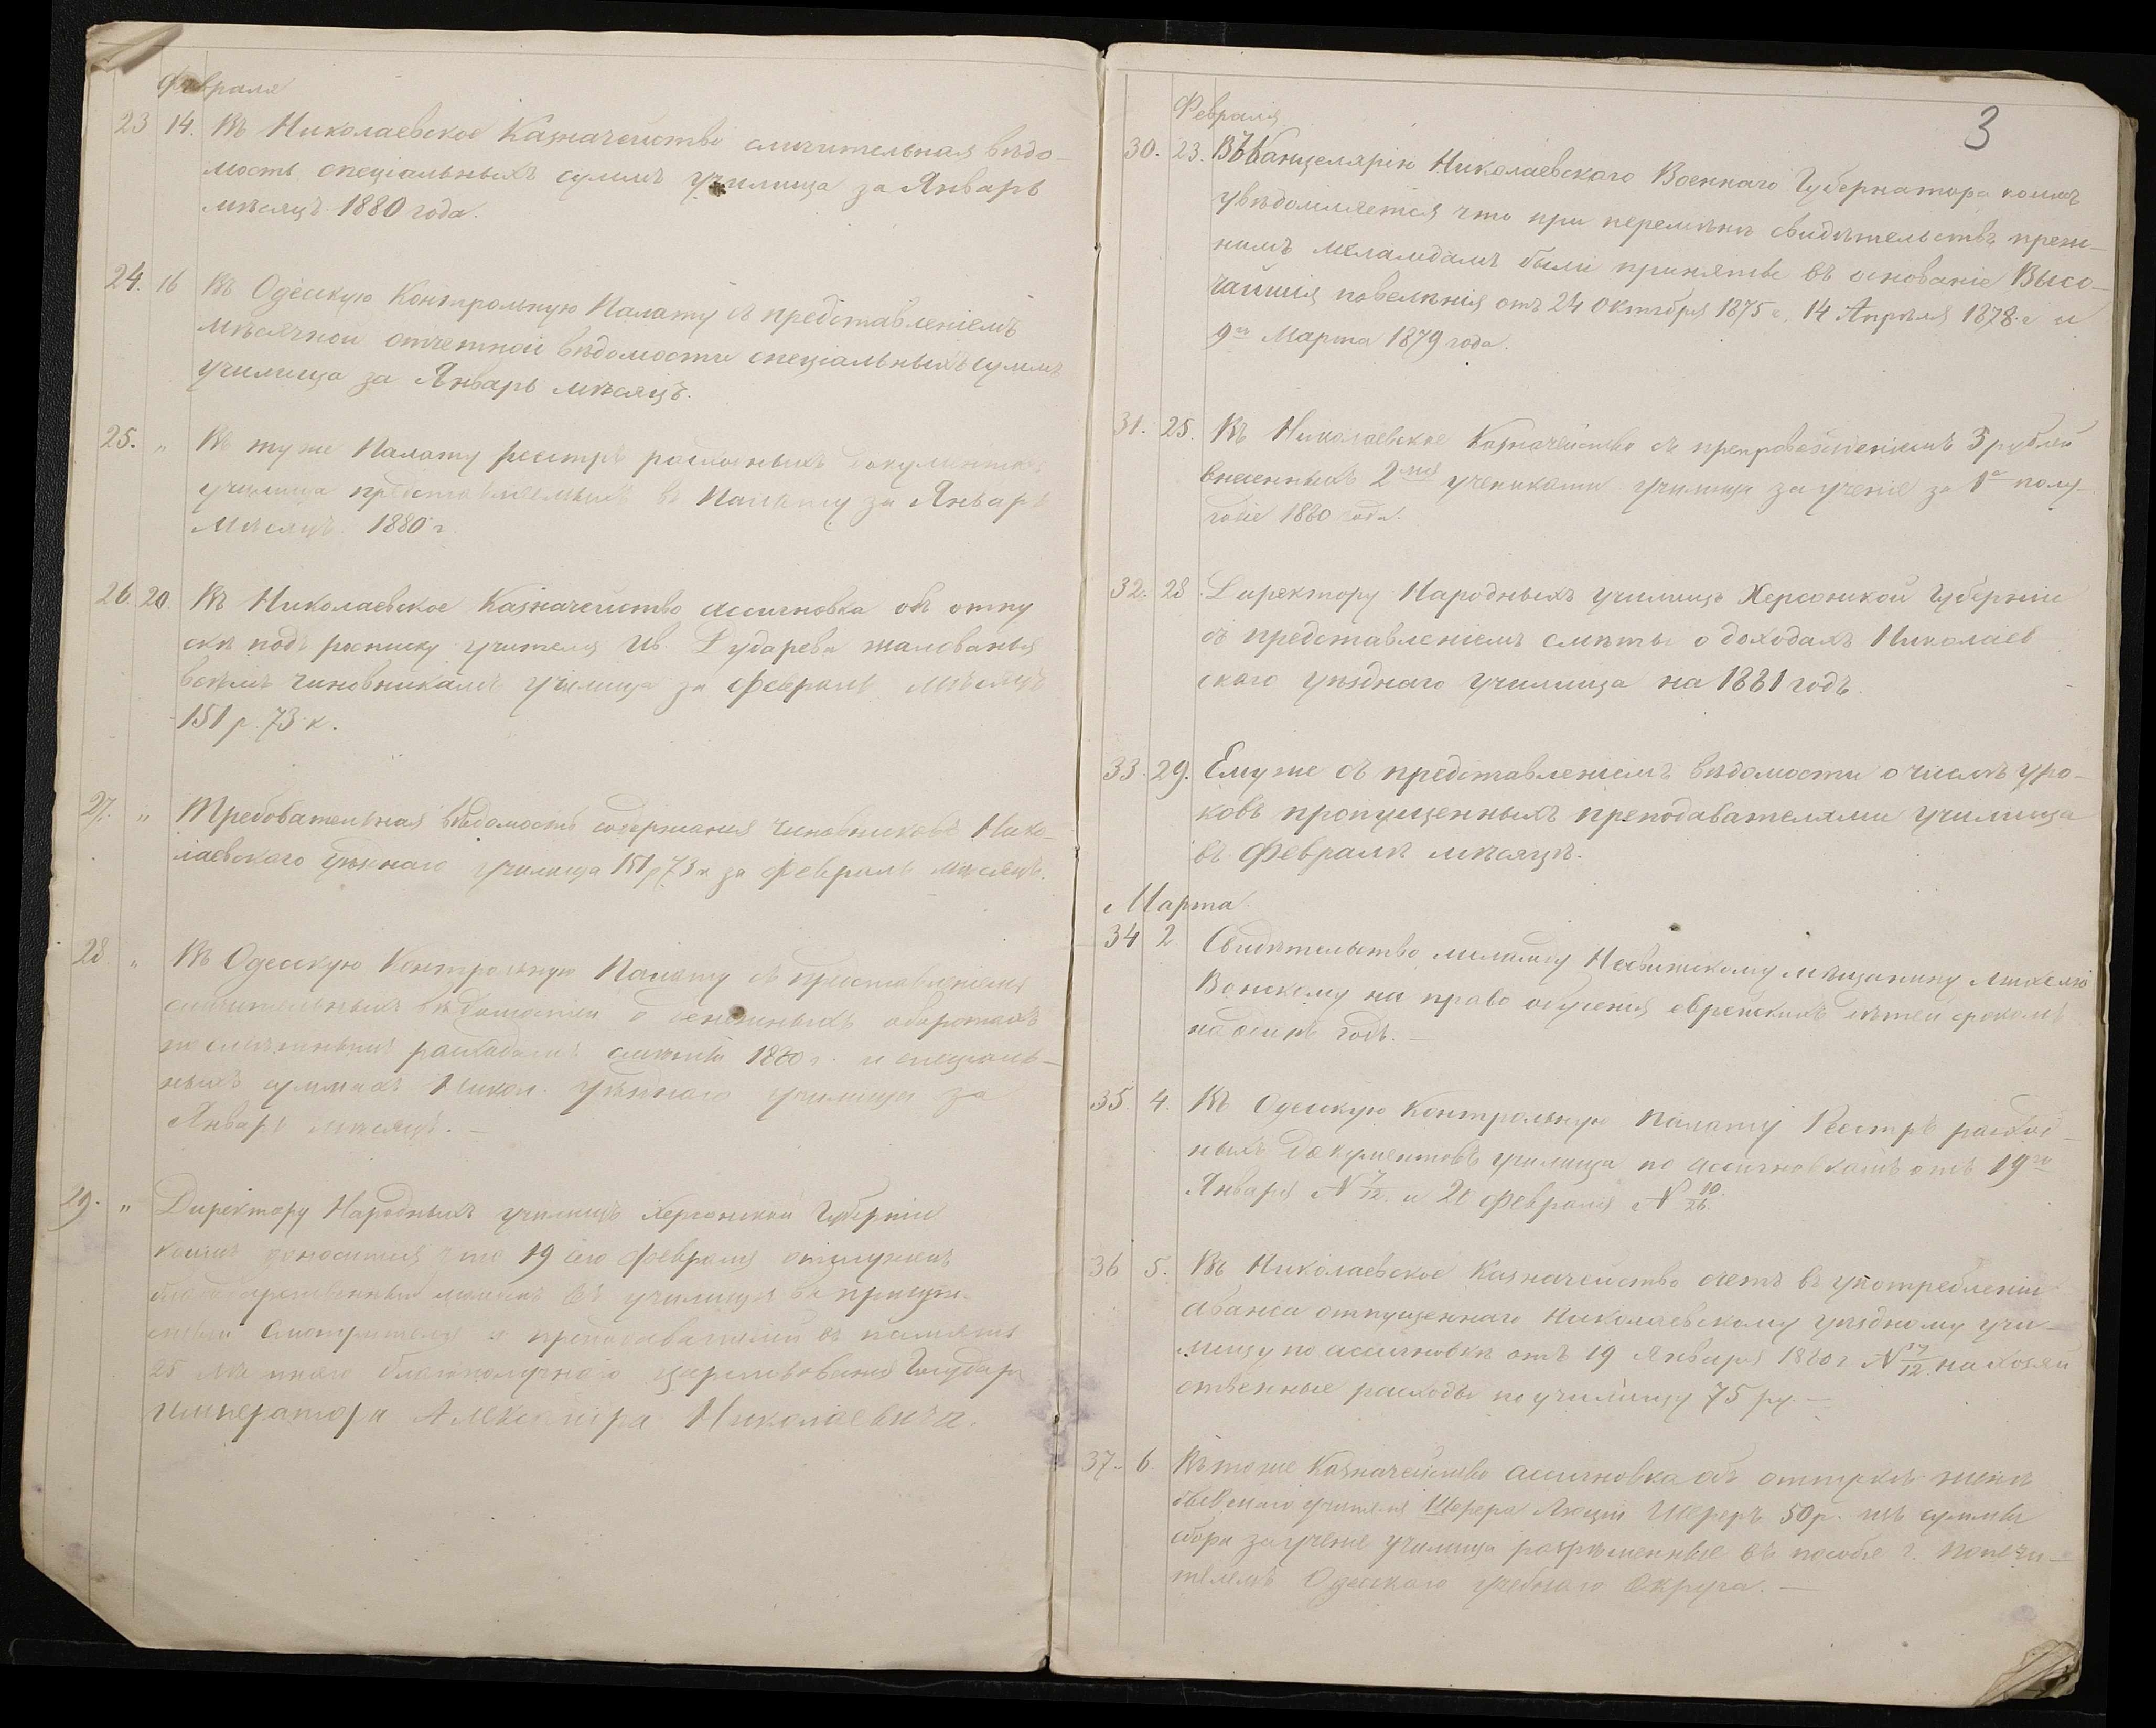 Февраля
23 14. Въ Николаевское Казначейство сличительная вѣдо-
мость спеціальныхъ суммъ училища за Январь
мѣсяцъ 1880 года.
24. 16 Въ Одесскую Контрольную Палату съ представленіемъ
мѣсячной отчетной вѣдомости спеціальныхъ суммъ
училища за Январь мѣсяцъ.
25. „ Въ туже Палату реестръ расходныхъ документовъ
училища представляемыхъ въ Палату за Январь
мѣсяцъ 1880 г.
26. 20. Въ Николаевское Казначейство ассигновка объ отпу
скѣ подъ росписку учителя Ив. Дударева жалованья
всѣмъ чиновникамъ училища за Февраль мѣсяцъ
151 р. 73 к.
27. „ Требовательная вѣдомость содержанія чиновниковъ Нико-
лаевскаго уѣзднаго училища 151 р 73 к за Февраль мѣсяцъ.
28 „ Въ Одесскую Контрольную Палату съ представленіемъ
сличительныхъ вѣдомостей о денежныхъ оборотахъ
по смѣтнымъ расходамъ смѣты 1880 г. и спеціаль-
ныхъ суммахъ Никол. уѣзднаго училища за
Январь мѣсяцъ. —
29. „ Директору Народныхъ училищъ Херсонской Губерніи
коимъ доноситъся что 19 сего Февраля отслуженъ
благодарственный молебенъ въ училищѣ въ присут-
ствіи Смотрителя и преподавателей въ память
25 лѣтняго благополучнаго царствованія Государя
Императора Александра Николаевича.
3
Февраля
30. 23. Въ Канцелярію Николаевскаго Военнаго Губернатора коимъ
увѣдомляется что при перемѣнѣ свидѣтельствъ преж-
нимъ меламдамъ были приняты въ основаніе Высо-
чайшія повелѣнія отъ 24 Октября 1875 г, 14 Апрѣля 1878 г и
9го Марта 1879 года.
31. 25. Въ Николаевское Казначейство съ препровожденіемъ 5 рублей
внесенныхъ 2мя учениками училища за ученіе за 1е полу-
годіе 1880 года.
32. 28. Директору Народныхъ училищъ Херсонской Губерніи
съ представленіемъ смѣты о доходахъ Николаев
скаго уѣзднаго училища на 1881 годъ.
33. 29. Емуже съ представленіемъ вѣдомости о числѣ уро-
ковъ пропущенныхъ преподавателями училища
въ Февралѣ мѣсяцѣ.
Марта
34 2. Свидѣтельство меламду Несвижскому мѣщанину
на право обученія еврейскихъ дѣтей срокомъ
на одинъ годъ. —
35. 4. Въ Одесскую Контрольную Палату Реестръ расход-
ныхъ документовъ училища по ассигновкамъ отъ 19го
Января № 7/12. и 20 Февраля № 10/26.
36 5. Въ Николаевское Казначейство счетъ въ употребленіи
аванса отпущеннаго Николаевскому уѣздному учи-
лищу по ассигновкѣ отъ 19 Января 1880 г № /12. на хозяй
ственные расходы по училищу 75 ру. —
37. 6. Въ тоже Казначейство ассигновка объ отпускѣ женѣ
бывшаго учителя Шерера Люціи Шереръ 50 р. изъ суммы
сбора за ученіе училища разрѣшенные въ пособіе г. Попечи-
телемъ Одесскаго учебнаго Округа. —